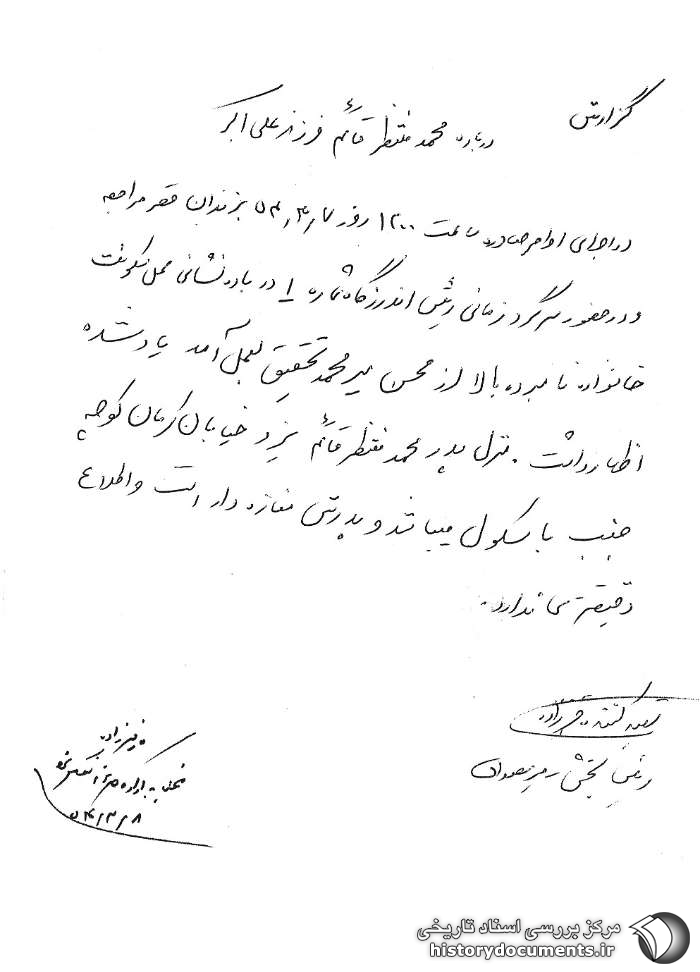 گزارش
درباره محمد منتظر قائم فرزند علی اکبر
در اجرای اوامر صادره ساعت ۱۲۰۰ روز ۵۴٫۳٫۷ بزندان قصر مراجعه
و در حضور سرگرد زمانی رئیس اندرزگاه شماره ۱ درباره نشانی محل سکونت
خانواده نامبرده بالا از محسن میرمحمد تحقیق بعمل آمد یاد شده
اظهار داشت. منزل پدر محمد منتظر قائم یزد خیابان کرمان کوچه
جنب باسکول میباشد و پدرش مغازه دار است و اطلاع
دقیقتری ندارد.
تهیه کننده
رئیس بخش
۵۴/۳/۸
مرکز بررسی اسناد تاریخی
historydocuments.ir